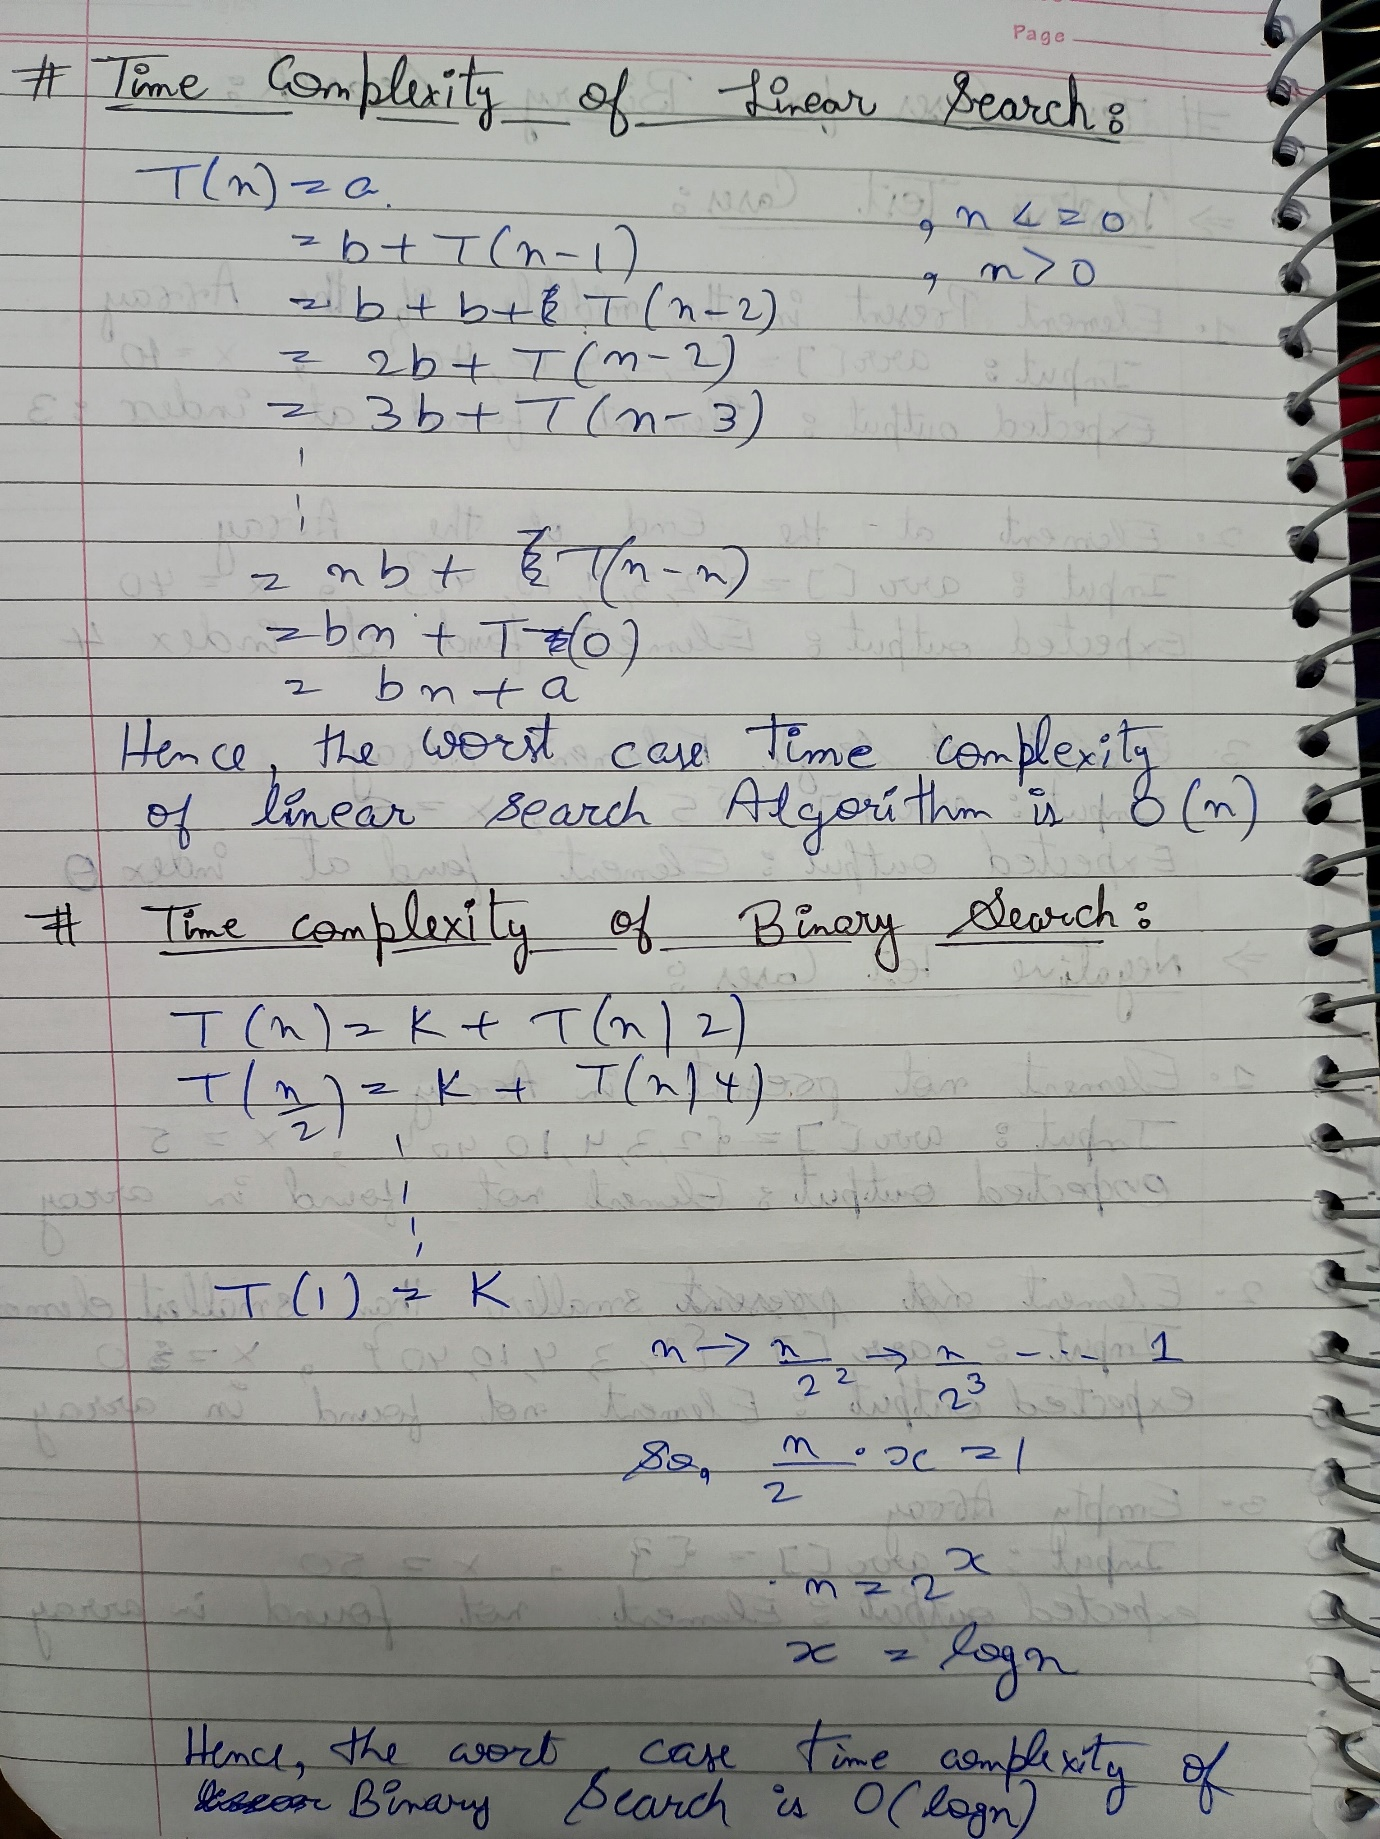 Page
# Time Complexity of Linear Search:
T(n) = a , n <= 0
= b + T(n-1) , n>0
= b + b + T(n-2)
= 2b + T(n-2)
= 3b + T(n-3)
= nb + T(n-n)
= bn + T(0)
= bn + a
Hence, the worst case time complexity
of linear search Algorithm is O(n)
# Time complexity of Binary Search:
T(n) = K + T(n/2)
T(n/2) = K + T(n/4)
T(1) = K
n → n/2² → n/2³ ---- 1
So, n/2 . x = 1
n = 2^x
x = logn
Hence, the wort case time complexity of
Binary Search is O(logn)